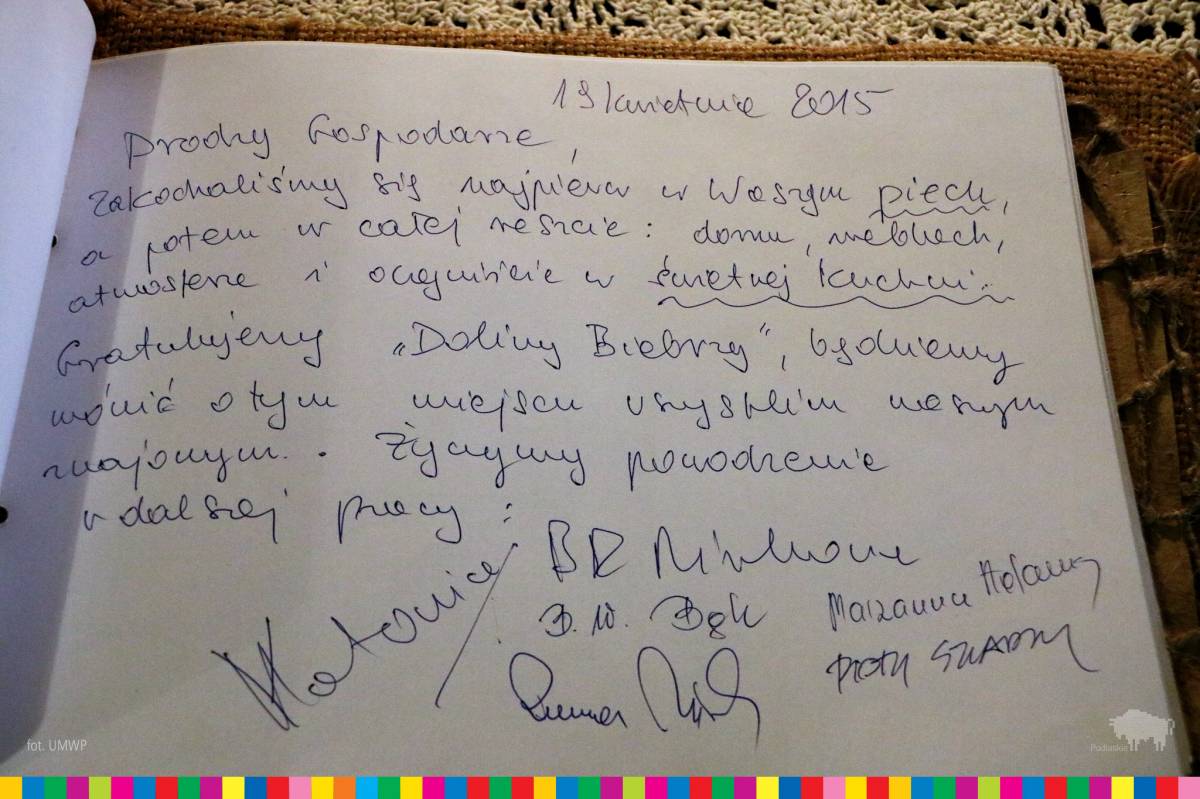 19 kwietnia 2015
Drodzy Gospodarze,
zakochaliśmy się najpierw w Waszym piecu,
a potem w całej reszcie: domu, meblach,
atmosferze i oczywiście w świetnej kuchni.
Gratulujemy „Doliny Biebrzy”, będziemy
mówić o tym miejscu wszystkim naszym
znajomym. Życzymy powodzenia
w dalszej pracy:
Katowice
BR
B. W. Bąk
Marzanna
Piotr
fot. UMWP
Podlaskie